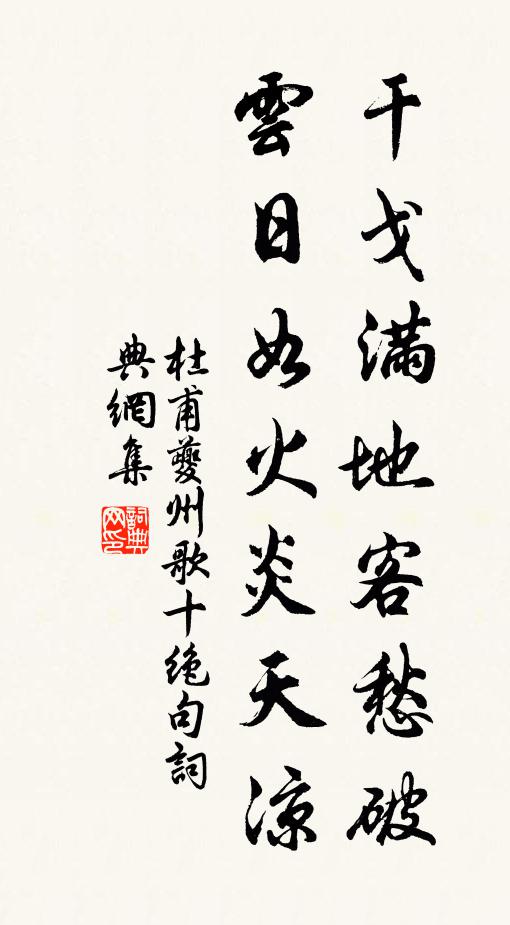 干戈滿地客愁破
雲日如火炎天涼
杜甫夔州歌十绝句詞
典網集
詞典
网印